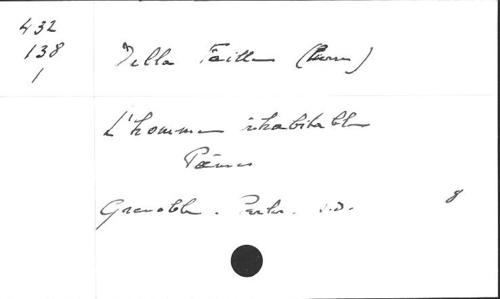 432
138
1
Della Faille (Pierre)
L'homme inhabitable
Poèmes
Grenoble. s.d.
8